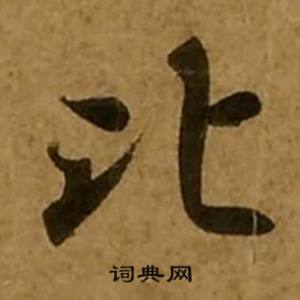 北
词典网